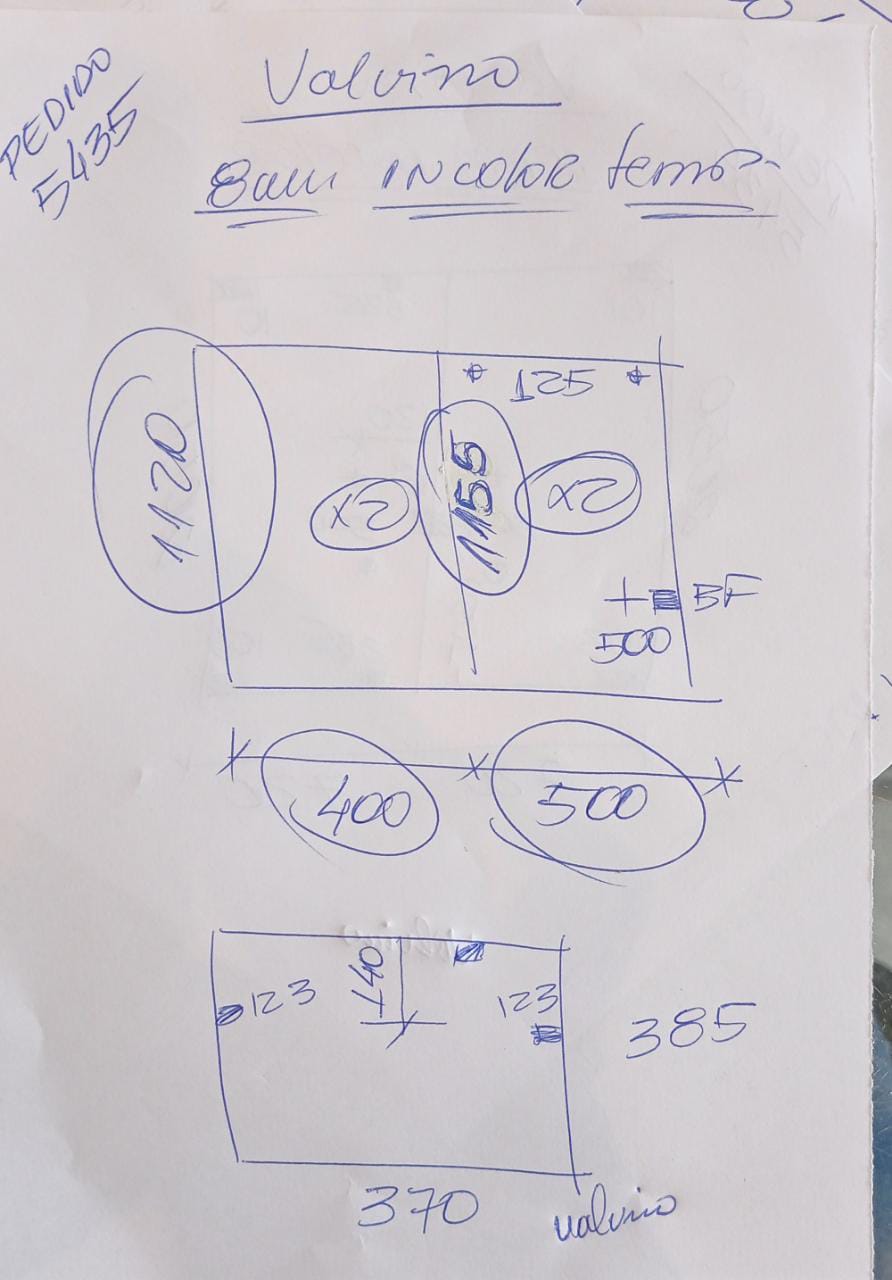 PEDIDO
5435
Valvino
8mm INCOLOR temp.
125
1120
1155
X2
X2
BF
500
400
500
140
123
123
385
370
valvino